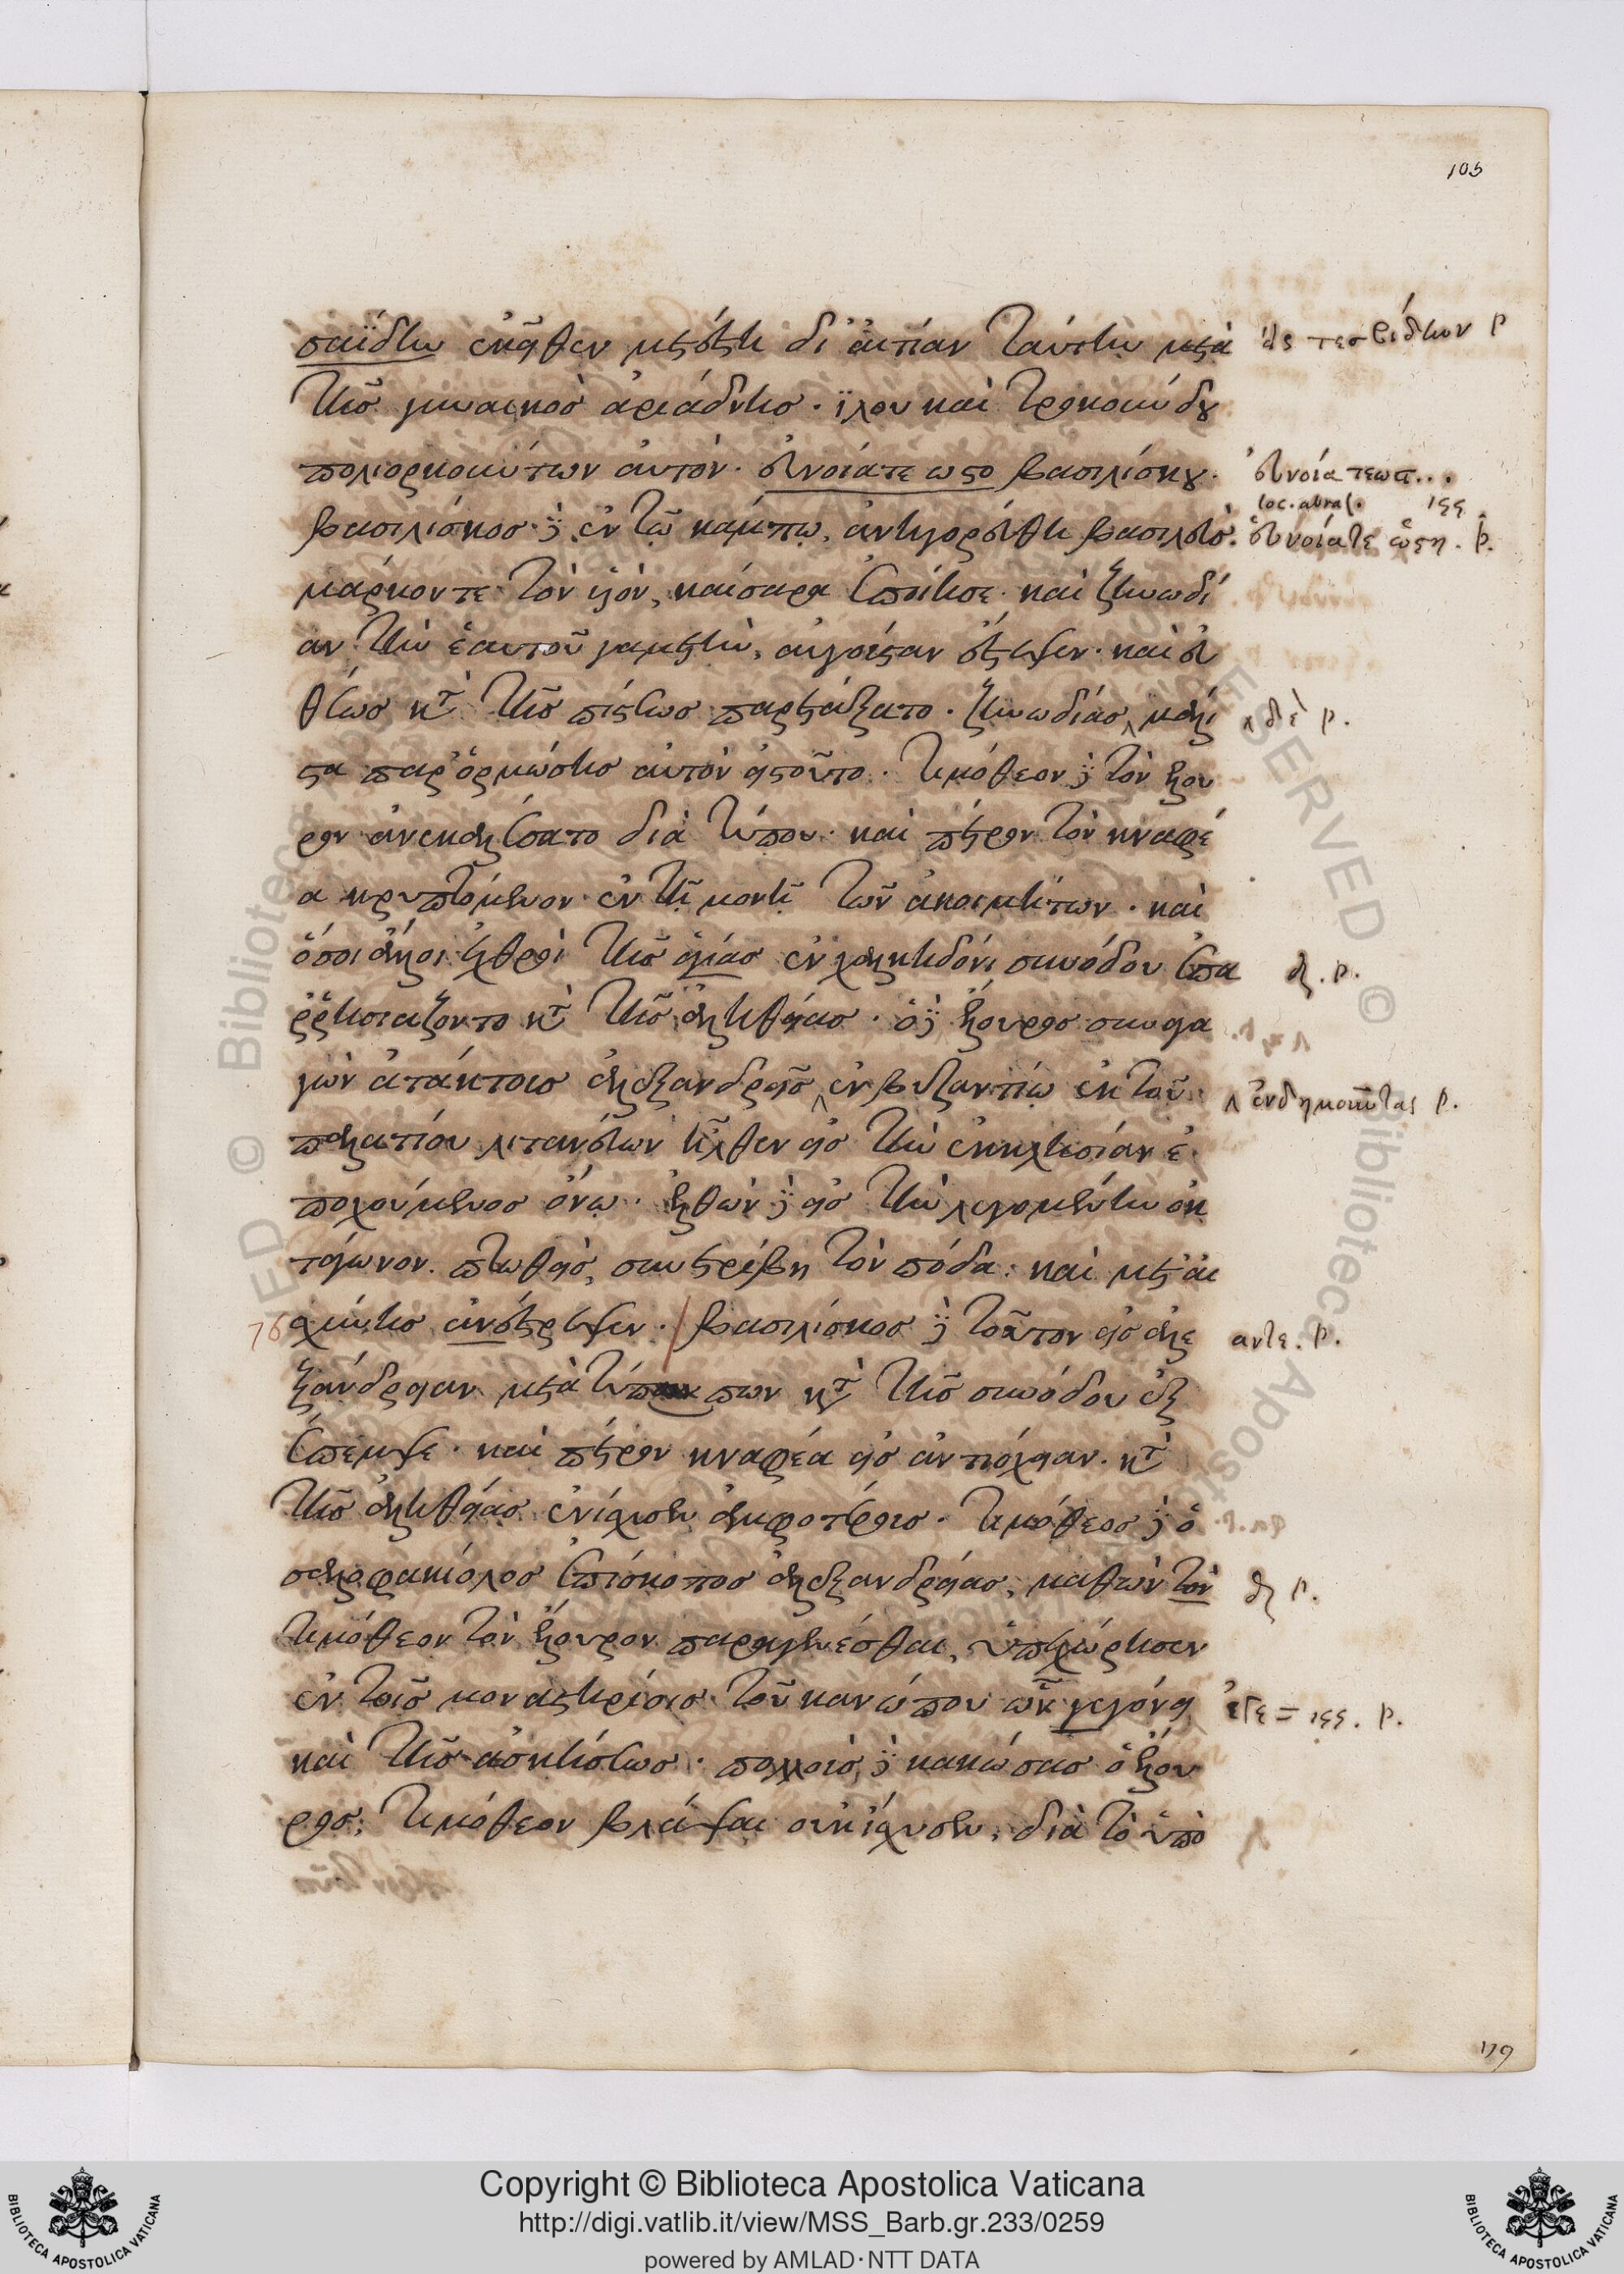 105
σαϊδην ἐκεῖθεν μετέστη δι' αἰτίαν ταύτην μετὰ
τῆς γυναικὸς ἀριάδνης. ἴλου καὶ τροκούνδου
πολιορκούντων αὐτόν. εὐνοίατε ωςο βασιλίσκου.
βασιλίσκος δὲ ἐν τῷ κάμπῳ, ἀνηγορεύθη βασιλεύς.
μαρκον τε τὸν υἱὸν, καίσαρα ἐποίησε. καὶ ζηνωδί
αν τὴν ἑαυτοῦ γαμετὴν, αὐγούσταν ἔστεψεν. καὶ εὐ
θέως κατὰ τῆς πίστεως παρετάξατο. ζηνωδίας μάλι
στα παρορμώσης αὐτὸν εἰς τοῦτο. τιμόθεον δὲ τὸν ἔλου
ρον ἀνεκαλέσατο διὰ τύπου. καὶ πέτρον τὸν κναφέ
α κρυπτόμενον ἐν τῇ μονῇ τῶν ἀκοιμήτων. καὶ
ὅσοι ἄλλοι ἐχθροὶ τῆς ἁγίας ἐν χαλκηδόνι συνόδου ἐπα
ῤῥησιάζοντο κατὰ τῆς ἀληθείας. ὁ δὲ ἔλουρος συναγα
γὼν ἀτάκτοις ἀλεξανδρεῖς ἐν βυζαντίῳ ἐκ τοῦ
παλατίου λιτανεύων ἦλθεν εἰς τὴν ἐκκλησίαν ἐ
ποχούμενος ὄνῳ. ἐλθὼν δὲ εἰς τὴν λεγομένην ὀκ
τάγωνον. πτωθεὶς, συνετρίβη τὸν πόδα. καὶ μετ' αἰ
σχύνης ἀνέστρεψεν. βασιλίσκος δὲ τοῦτον εἰς ἀλε
ξάνδρειαν μετὰ τύπων κατὰ τῆς συνόδου ἐξ
έπεμψε. καὶ πέτρον κναφέα εἰς ἀντιόχειαν. κατὰ
τῆς ἀληθείας ἐνίσχυσεν ἀμφοτέροις. τιμόθεος δὲ ὁ
σαλοφακίολος ἐπίσκοπος ἀλεξανδρείας, μαθὼν τὸν
τιμόθεον τὸν ἔλουρον παραγενέσθαι, ὑπεχώρησεν
ἐν τοῖς μοναστηρίοις τοῦ κανώπου ὧν γεγόνει
καὶ τῆς ἀσκήσεως. πολλοὺς δὲ κακώσας ὁ ἔλου
ρος, τιμόθεον βλάψαι οὐκ ἴσχυσεν, διὰ τὸ ὑπὸ
εὐνοία τεωπ...
loc. abras.
δὲ p.
λ ἐνδημοῦντας p.
αντε. p.
76
179
Copyright © Biblioteca Apostolica Vaticana
http://digi.vatlib.it/view/MSS_Barb.gr.233/0259
powered by AMLAD·NTT DATA
BIBLIOTECA APOSTOLICA VATICANA
BIBLIOTECA APOSTOLICA VATICANA